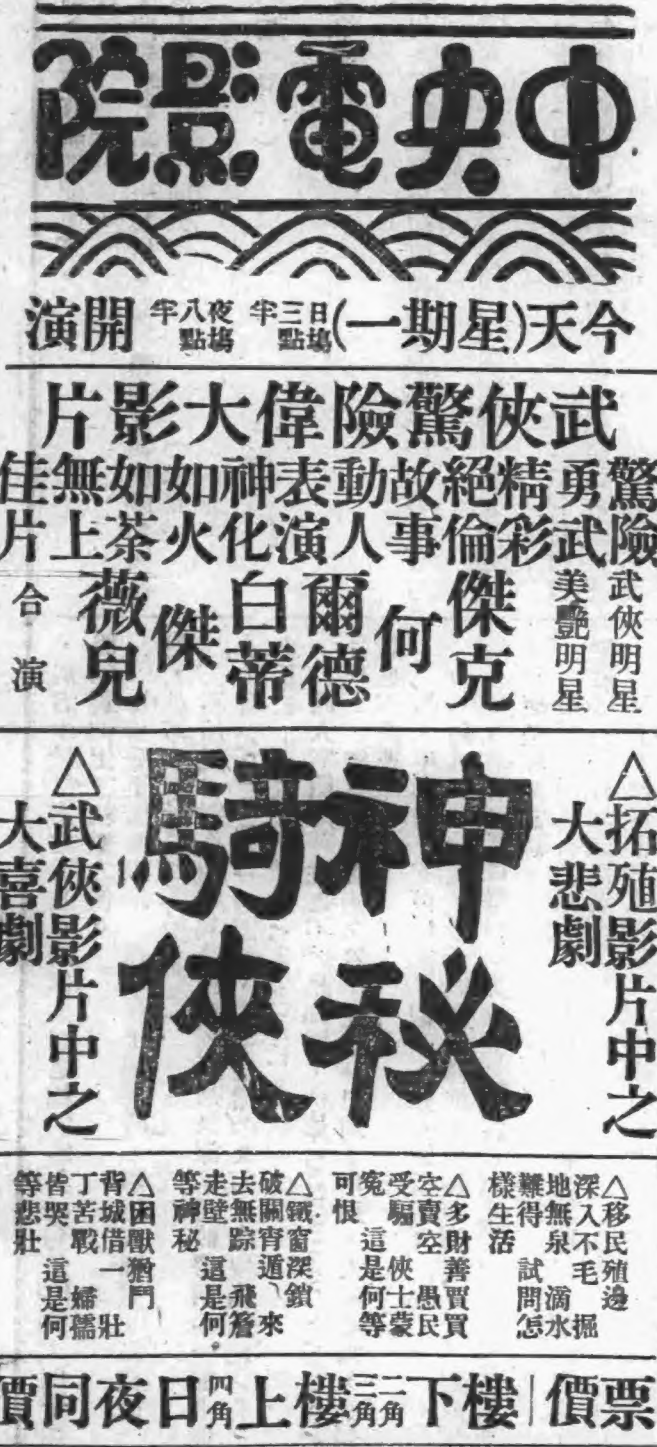 中央電影院
今天(星期一)日塲三點半 夜塲八點半 開演
武俠驚險偉大影片
驚險勇武精彩絕倫故事動人表演神化如火如荼無上佳片
武俠明星
美艷明星
傑克
何
爾德
白蒂
傑
薇兒
合演
△拓殖影片中之
大悲劇
神秘
騎俠
△武俠影片中之
大喜劇
△移民殖邊
深入不毛 掘
地無泉 滴水
難得 試問怎
樣生活
△多財善賈買
空賣空 愚民
受騙 俠士蒙
冤 這是何等
可恨
△鐵窗深鎖
破關宵遁 來
去無踪 飛簷
走壁 這是何
等神秘
△困獸猶鬥
背城借一 壯
丁苦戰 婦孺
皆哭 這是何
等悲壯
票價|樓下二角三角樓上四角日夜同價